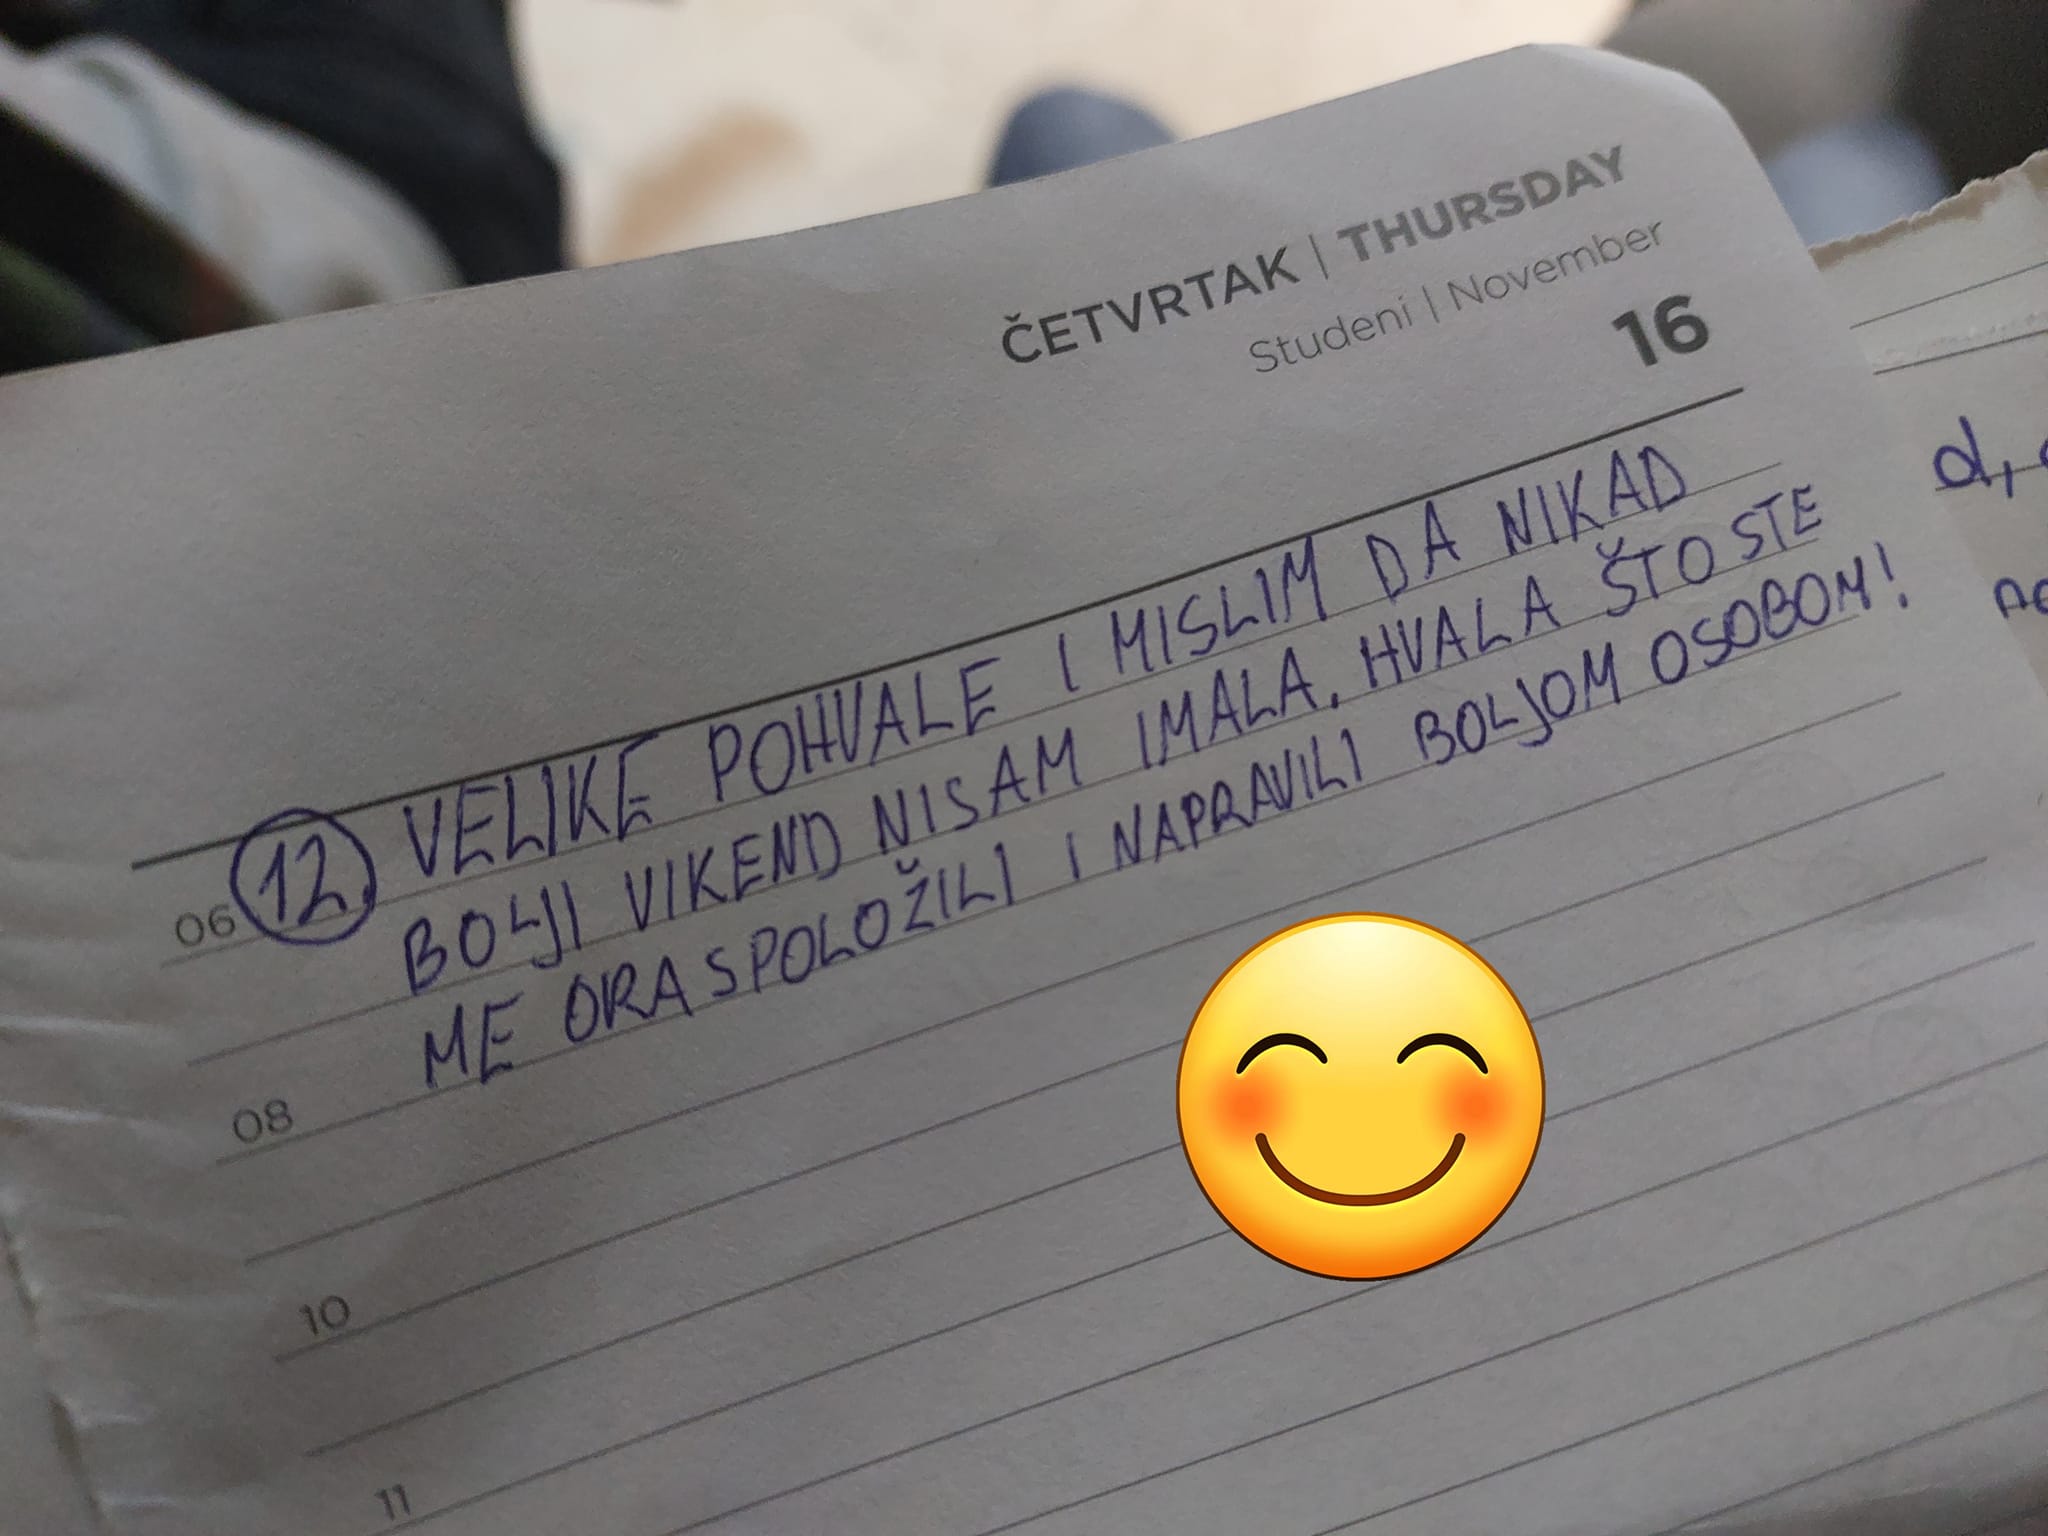 ČETVRTAK | THURSDAY
Studeni | November
16
06 12. VELIKE POHVALE I MISLIM DA NIKAD
BOLJI VIKEND NISAM IMALA. HVALA ŠTO STE
08 ME ORASPOLOŽILI I NAPRAVILI BOLJOM OSOBOM!
10
11
d,